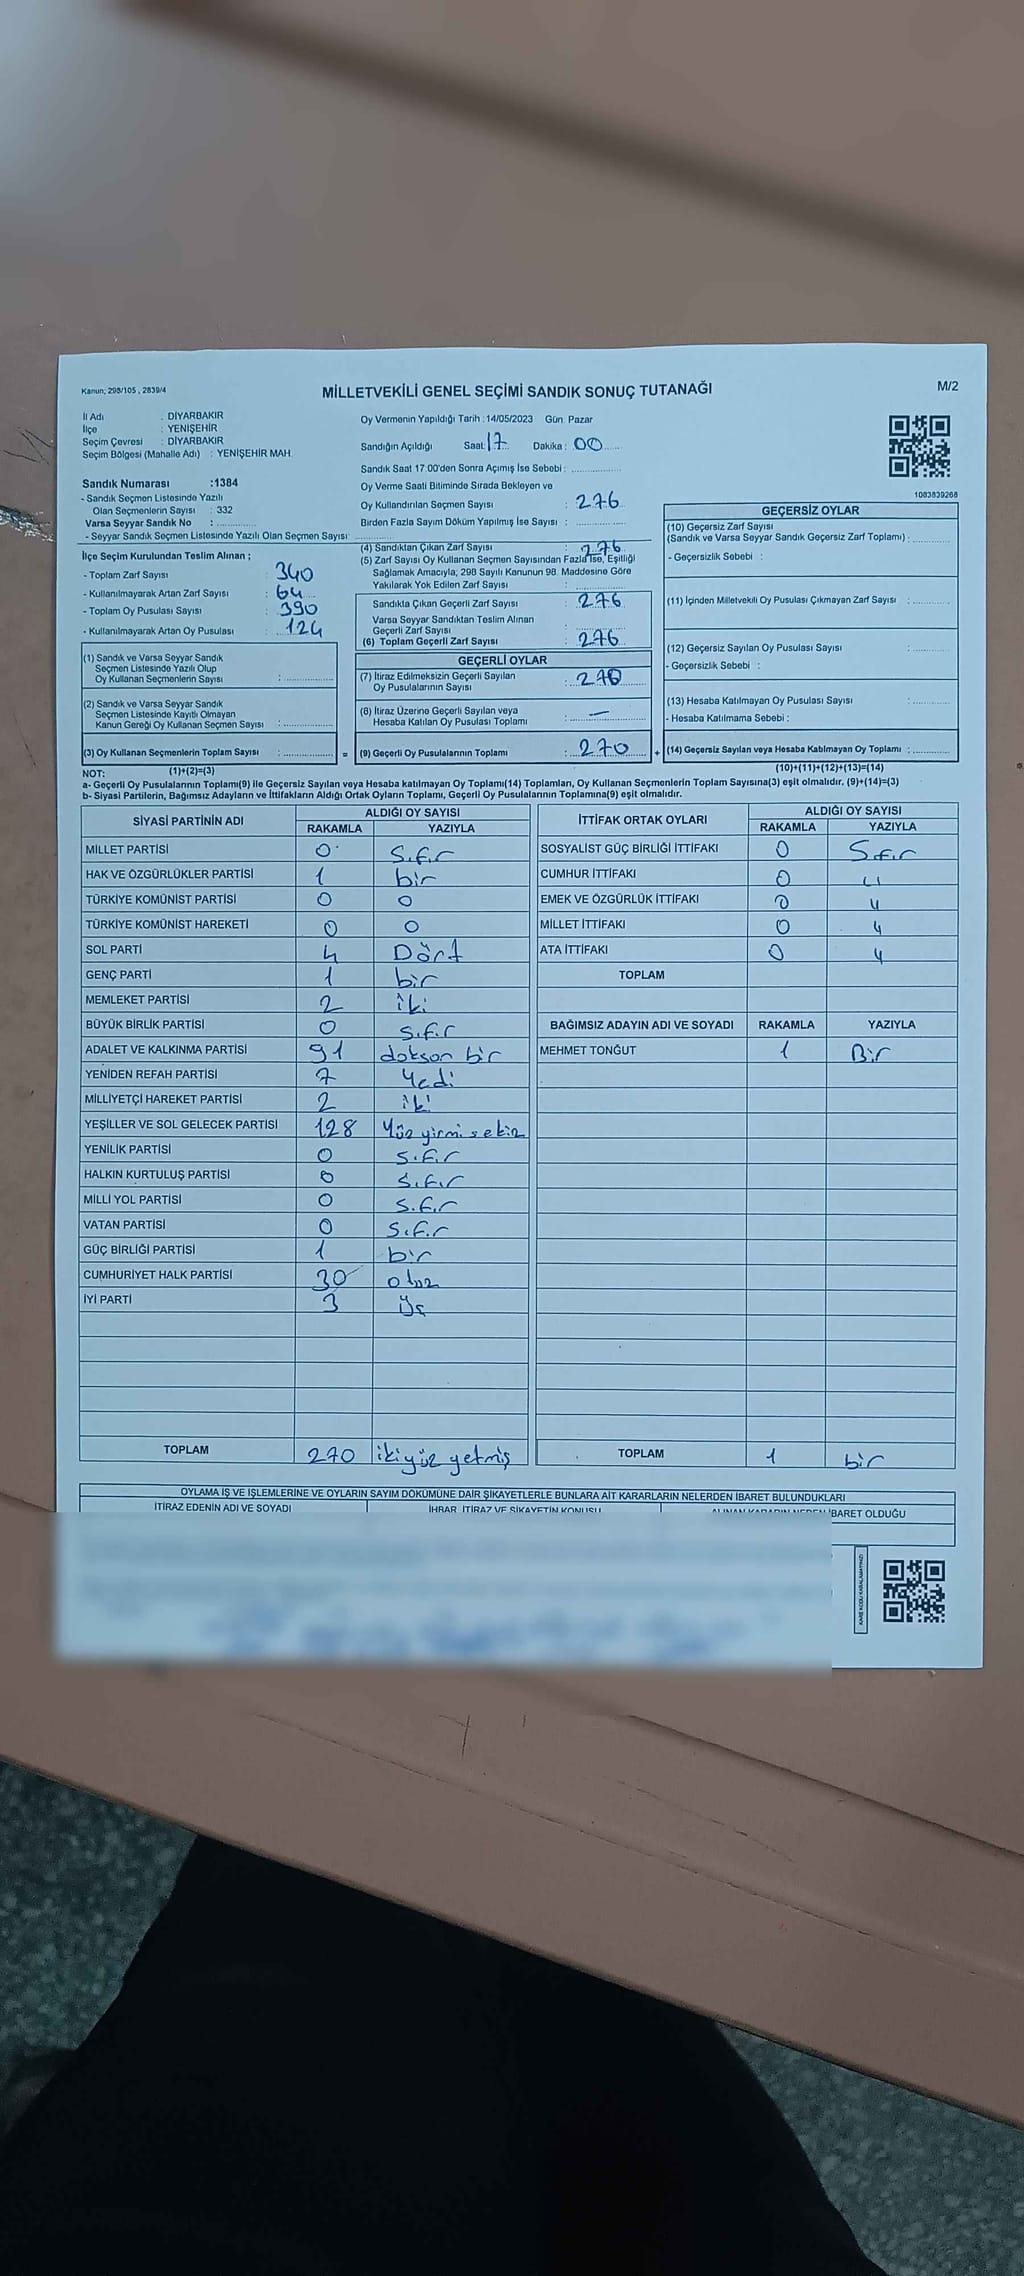 Kanun; 298/105 , 2839/4
MİLLETVEKİLİ GENEL SEÇİMİ SANDIK SONUÇ TUTANAĞI
M/2
İl Adı : DİYARBAKIR
İlçe : YENİŞEHİR
Seçim Çevresi : DİYARBAKIR
Seçim Bölgesi (Mahalle Adı) : YENİŞEHİR MAH.
Sandık Numarası :1384
- Sandık Seçmen Listesinde Yazılı
Olan Seçmenlerin Sayısı : 332
Varsa Seyyar Sandık No :
- Seyyar Sandık Seçmen Listesinde Yazılı Olan Seçmen Sayısı:
Oy Vermenin Yapıldığı Tarih : 14/05/2023 Gün Pazar
Sandığın Açıldığı Saat: 17 Dakika : 00
Sandık Saat 17.00'den Sonra Açımış İse Sebebi :
Oy Verme Saati Bitiminde Sırada Bekleyen ve
Oy Kullandırılan Seçmen Sayısı : 276
Birden Fazla Sayım Döküm Yapılmış İse Sayısı :
1083839268
İlçe Seçim Kurulundan Teslim Alınan ;
- Toplam Zarf Sayısı : 340
- Kullanılmayarak Artan Zarf Sayısı : 64
- Toplam Oy Pusulası Sayısı : 390
- Kullanılmayarak Artan Oy Pusulası : 124
(1) Sandık ve Varsa Seyyar Sandık
Seçmen Listesinde Yazılı Olup
Oy Kullanan Seçmenlerin Sayısı :
(2) Sandık ve Varsa Seyyar Sandık
Seçmen Listesinde Kayıtlı Olmayan
Kanun Gereği Oy Kullanan Seçmen Sayısı :
(3) Oy Kullanan Seçmenlerin Toplam Sayısı : =
(1)+(2)=(3)
(4) Sandıktan Çıkan Zarf Sayısı : 276
(5) Zarf Sayısı Oy Kullanan Seçmen Sayısından Fazla İse, Eşitliği
Sağlamak Amacıyla, 298 Sayılı Kanunun 98. Maddesine Göre
Yakılarak Yok Edilen Zarf Sayısı :
Sandıkta Çıkan Geçerli Zarf Sayısı : 276
Varsa Seyyar Sandıktan Teslim Alınan
Geçerli Zarf Sayısı :
(6) Toplam Geçerli Zarf Sayısı : 276
GEÇERLİ OYLAR
(7) İtiraz Edilmeksizin Geçerli Sayılan
Oy Pusulalarının Sayısı : 270
(8) İtiraz Üzerine Geçerli Sayılan veya
Hesaba Katılan Oy Pusulası Toplamı : —
(9) Geçerli Oy Pusulalarının Toplamı : 270 +
GEÇERSİZ OYLAR
(10) Geçersiz Zarf Sayısı
(Sandık ve Varsa Seyyar Sandık Geçersiz Zarf Toplamı) :
- Geçersizlik Sebebi :
(11) İçinden Milletvekili Oy Pusulası Çıkmayan Zarf Sayısı :
(12) Geçersiz Sayılan Oy Pusulası Sayısı :
- Geçersizlik Sebebi :
(13) Hesaba Katılmayan Oy Pusulası Sayısı :
- Hesaba Katılmama Sebebi :
(14) Geçersiz Sayılan veya Hesaba Katılmayan Oy Toplamı :
(10)+(11)+(12)+(13)=(14)
NOT:
a- Geçerli Oy Pusulalarının Toplamı(9) ile Geçersiz Sayılan veya Hesaba katılmayan Oy Toplamı(14) Toplamları, Oy Kullanan Seçmenlerin Toplam Sayısına(3) eşit olmalıdır. (9)+(14)=(3)
b- Siyasi Partilerin, Bağımsız Adayların ve İttifakların Aldığı Ortak Oyların Toplamı, Geçerli Oy Pusulalarının Toplamına(9) eşit olmalıdır.
SİYASİ PARTİNİN ADI ALDIĞI OY SAYISI
RAKAMLA YAZIYLA
MİLLET PARTİSİ 0 Sıfır
HAK VE ÖZGÜRLÜKLER PARTİSİ 1 bir
TÜRKİYE KOMÜNİST PARTİSİ 0 0
TÜRKİYE KOMÜNİST HAREKETİ 0 0
SOL PARTİ 4 Dört
GENÇ PARTİ 1 bir
MEMLEKET PARTİSİ 2 iki
BÜYÜK BİRLİK PARTİSİ 0 sıfır
ADALET VE KALKINMA PARTİSİ 91 doksan bir
YENİDEN REFAH PARTİSİ 7 Yedi
MİLLİYETÇİ HAREKET PARTİSİ 2 iki
YEŞİLLER VE SOL GELECEK PARTİSİ 128 Yüz yirmi sekiz
YENİLİK PARTİSİ 0 sıfır
HALKIN KURTULUŞ PARTİSİ 0 sıfır
MİLLİ YOL PARTİSİ 0 sıfır
VATAN PARTİSİ 0 sıfır
GÜÇ BİRLİĞİ PARTİSİ 1 bir
CUMHURİYET HALK PARTİSİ 30 otuz
İYİ PARTİ 3 Üç
TOPLAM 270 ikiyüz yetmiş
İTTİFAK ORTAK OYLARI ALDIĞI OY SAYISI
RAKAMLA YAZIYLA
SOSYALİST GÜÇ BİRLİĞİ İTTİFAKI 0 Sıfır
CUMHUR İTTİFAKI 0 "
EMEK VE ÖZGÜRLÜK İTTİFAKI 0 "
MİLLET İTTİFAKI 0 "
ATA İTTİFAKI 0 "
TOPLAM
BAĞIMSIZ ADAYIN ADI VE SOYADI RAKAMLA YAZIYLA
MEHMET TONĞUT 1 Bir
TOPLAM 1 bir
OYLAMA İŞ VE İŞLEMLERİNE VE OYLARIN SAYIM DÖKÜMÜNE DAİR ŞİKAYETLERLE BUNLARA AİT KARARLARIN NELERDEN İBARET BULUNDUKLARI
İTİRAZ EDENİN ADI VE SOYADI İHBAR, İTİRAZ VE ŞİKAYETİN KONUSU ALINAN KARARIN NEDEN İBARET OLDUĞU
KARE KODU KARALAMAYINIZ!